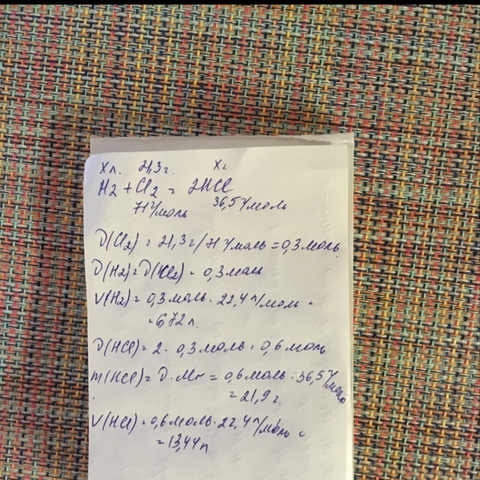 Xл. 21,3г. Xг
H2 + Cl2 = 2HCl
71г/моль 36,5г/моль
ν(Cl2) = 21,3г/71г/моль = 0,3моль.
ν(H2) = ν(Cl2) = 0,3моль
V(H2) = 0,3моль · 22,4л/моль =
= 6,72л.
ν(HCl) = 2 · 0,3моль = 0,6моль
m(HCl) = ν · Mr = 0,6моль · 36,5г/моль
= 21,9г.
V(HCl) = 0,6моль · 22,4л/моль =
= 13,44л